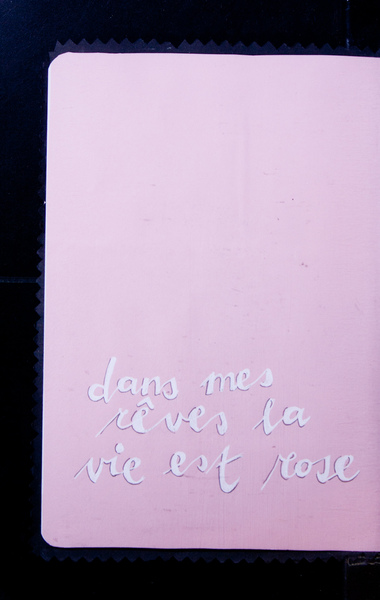 dans mes
rêves la
vie est rose